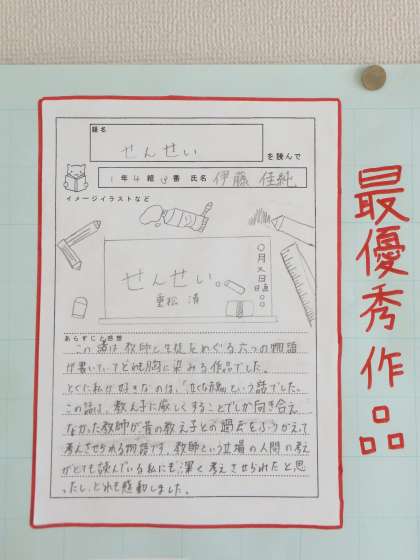 題名
せんせい
を読んで
1年4組3番 氏名 伊藤 佳純
イメージイラストなど
せんせい。
重松 清
○月×日
日直
○○
あらすじと感想
この話は教師と生徒をめぐる六つの物語
が書いていてとても胸に染みる作品でした。
とくに私が好きなのは、「にんじん」という話でした。
この話は、教え子に厳しくすることでしか向き合え
なかった教師が昔の教え子との過去をふりかえって
考えさせられる物語です。教師という立場の人間の考え
がとても読んでいる私にも深く考えさせられたと思
ったし、とても感動しました。
最優秀作品